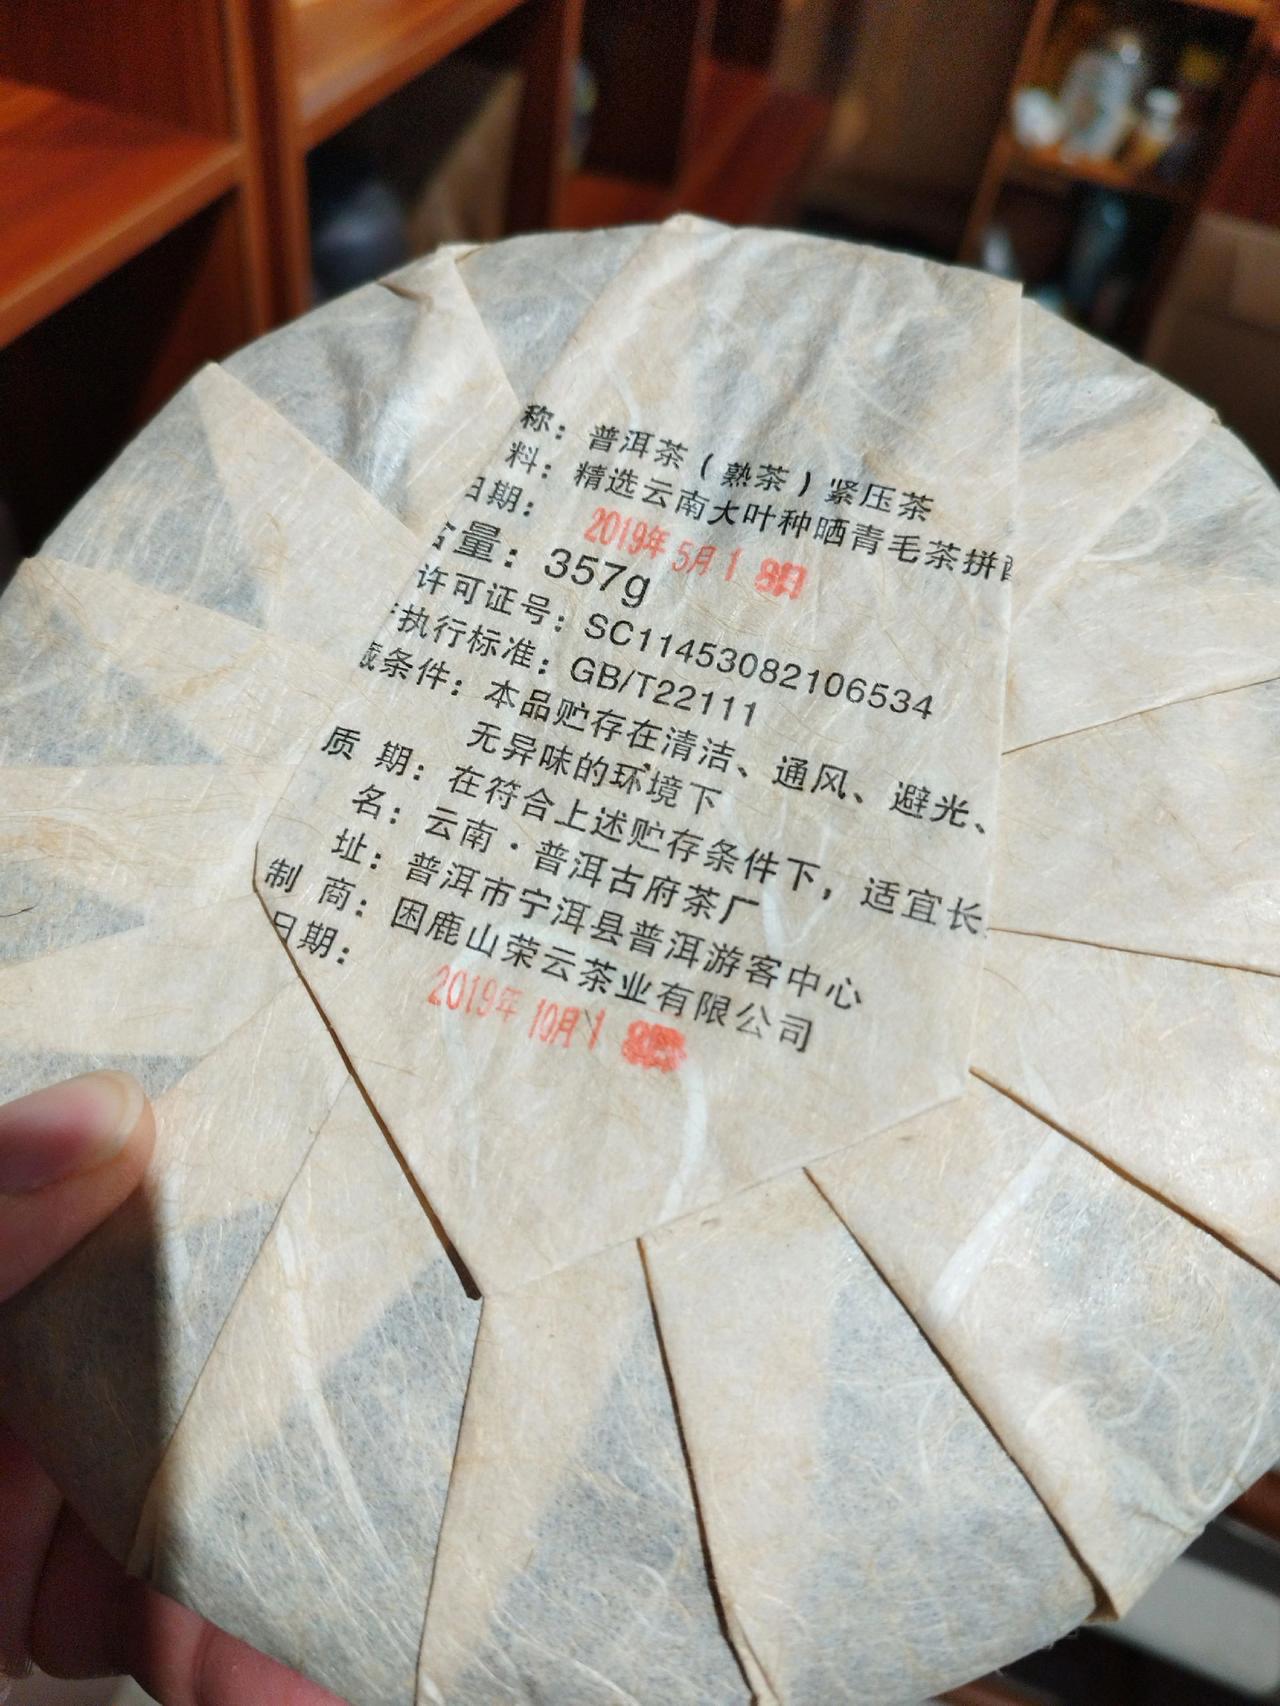 称：普洱茶（熟茶）紧压茶
料：精选云南大叶种晒青毛茶拼
日期：2019年5月1 日
含量：357g
许可证号：SC11453082106534
执行标准：GB/T22111
藏条件：本品贮存在清洁、通风、避光、
无异味的环境下
质 期：在符合上述贮存条件下，适宜长
名：云南·普洱古府茶厂
址：普洱市宁洱县普洱游客中心
制 商：困鹿山荣云茶业有限公司
日期：
2019年10月1